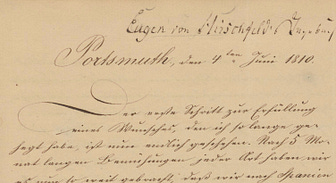 Eugen von Hirschfeld's Tagebuch
Portsmuth, den 4ten Juni 1810.
Der erste Schritt zur Erfüllung
eines Wunsches, den ich so lange ge-
hegt habe, ist nun endlich geschehen. Nach 3 Mo-
nat langen Bemühungen jeder Art haben wir
es nun so weit gebracht, daß wir nach Spanien